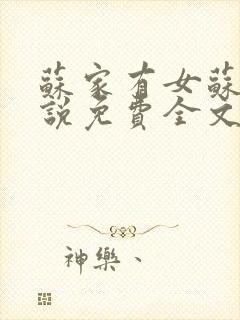 蘇家有女蘇
說免費全文
神樂、